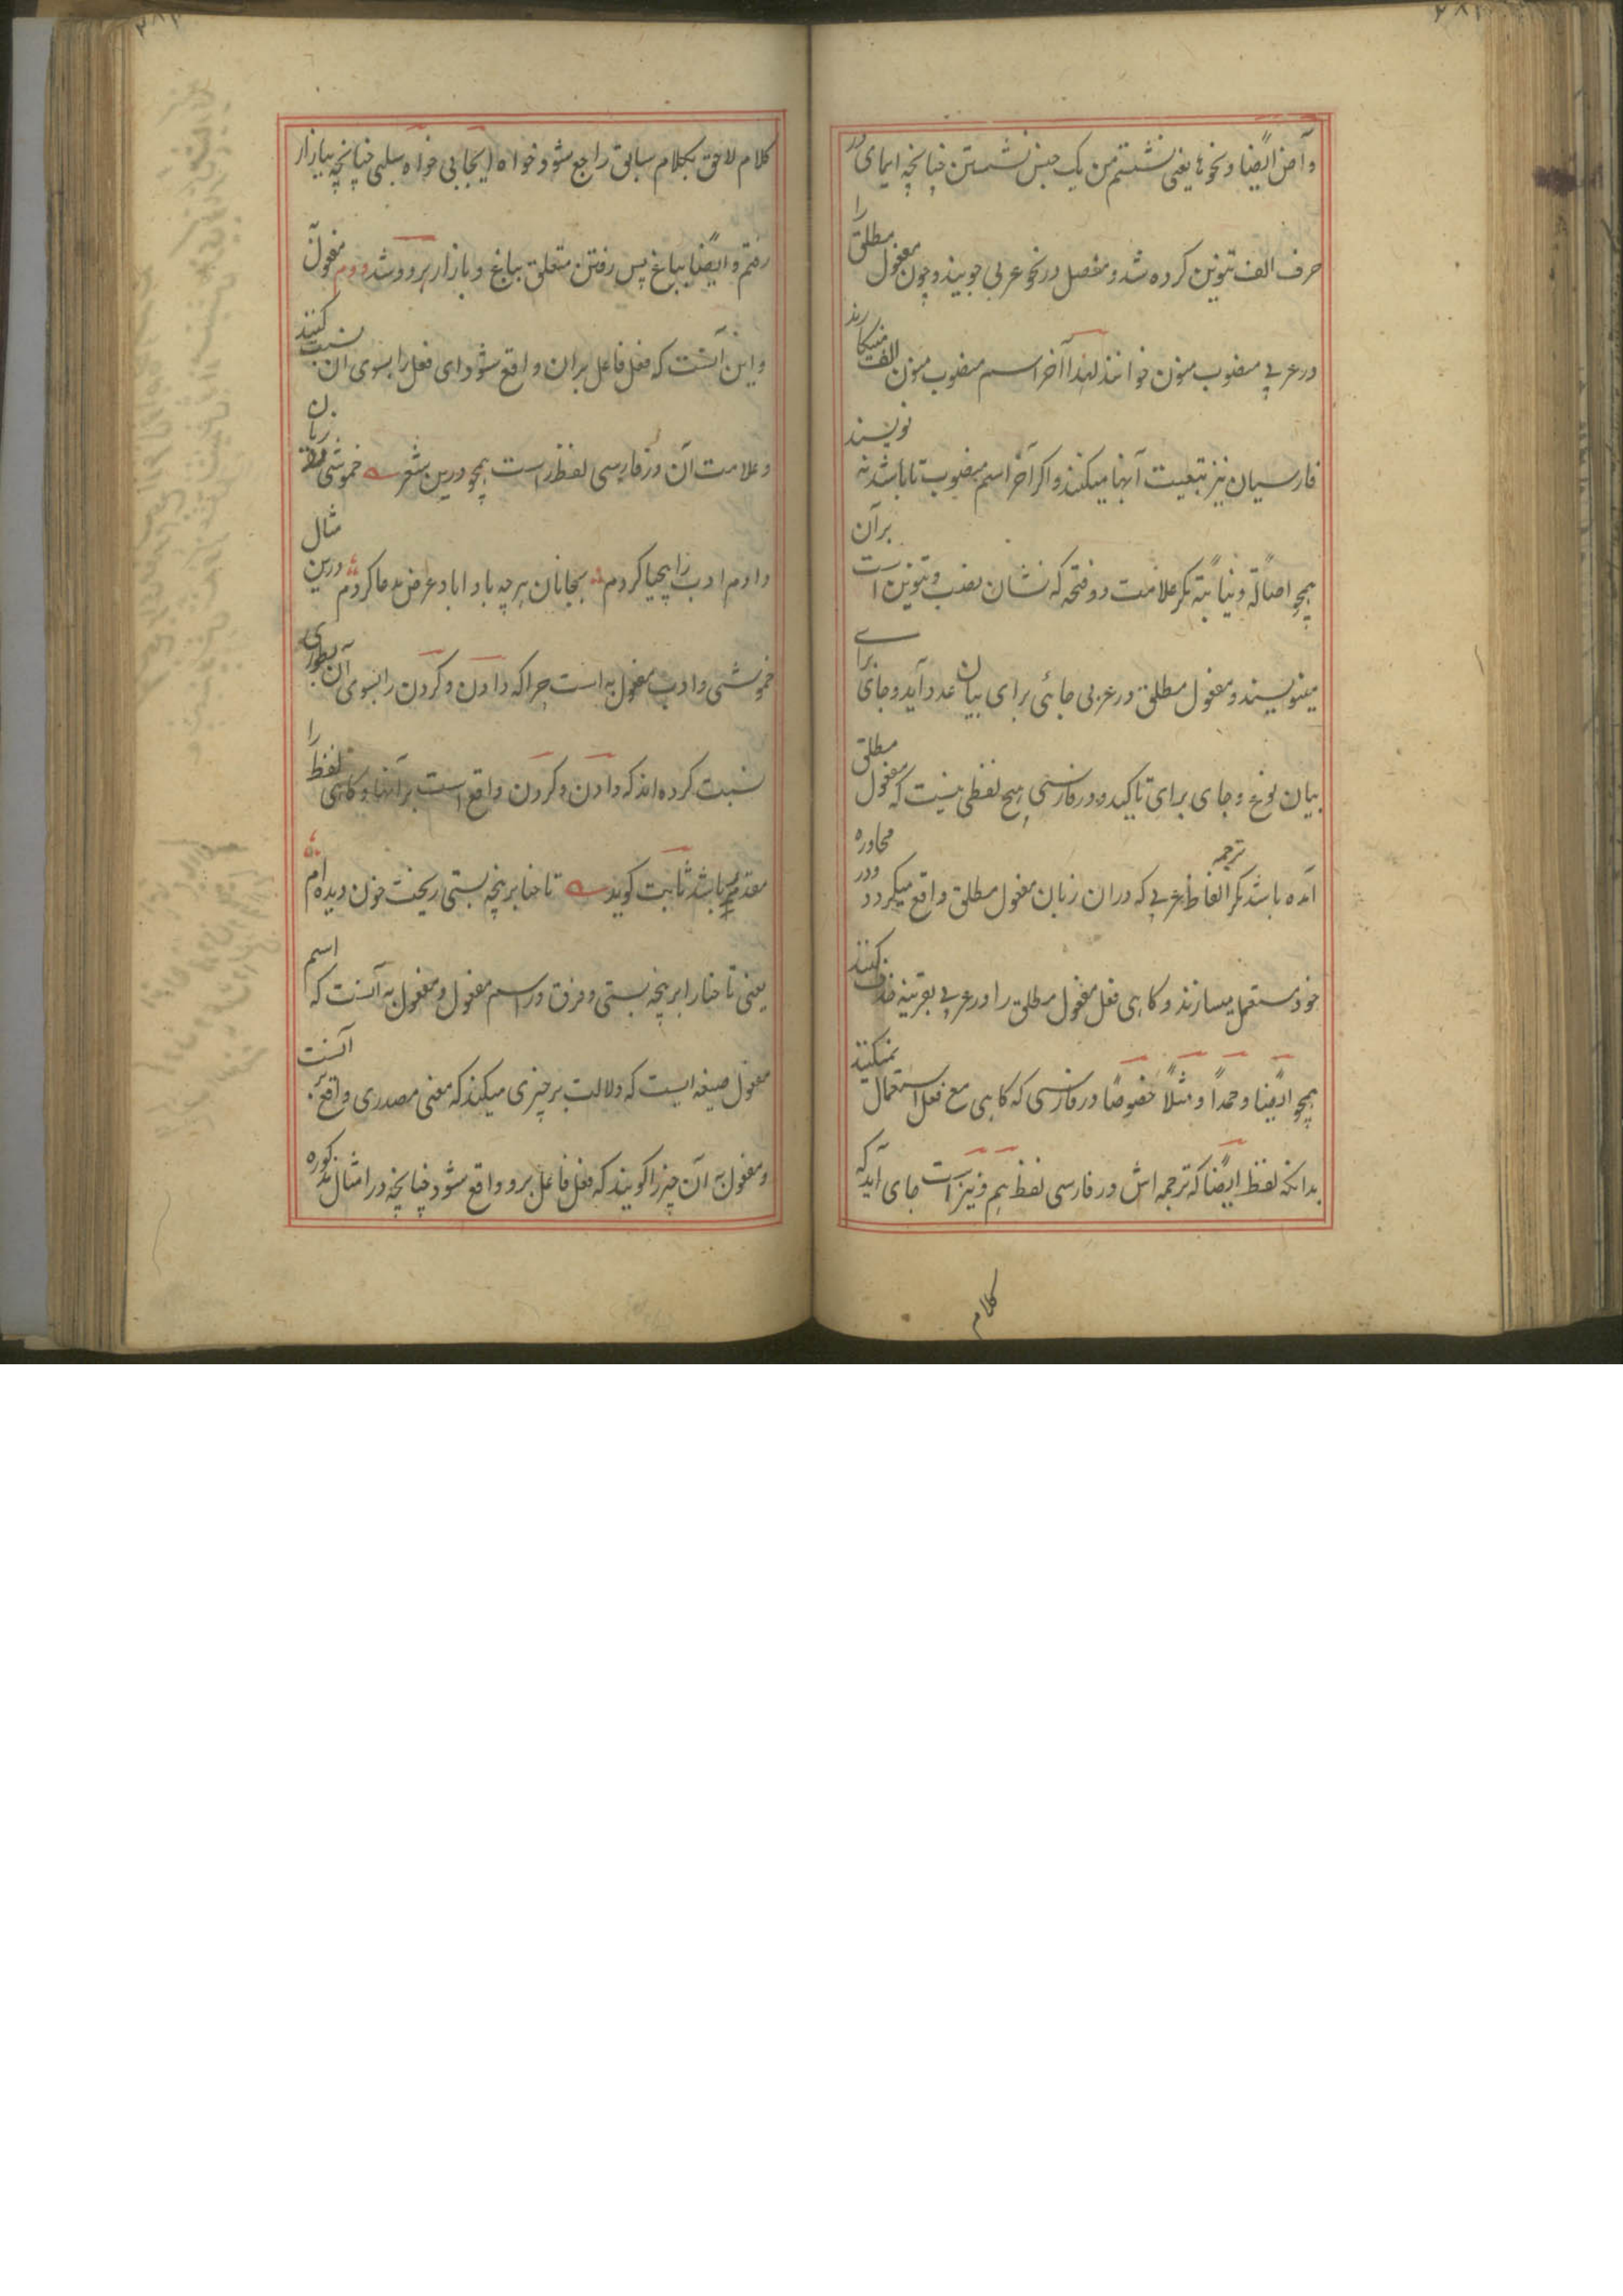 وآض ایضا و نحو ها یعنی نشستم من یک جنس نشستن چنانچه ایمای در
حرف الف تنوین کرده شد و مفصل در نحو عربی جویند و چون مفعول مطلق را
در عربی منصوب منون خوانند لهذا آخر اسم منصوب منون الف مینگارند
فارسیان نیز تبعیت آنها میکنند و اگر آخر اسم منصوب تا باشد نه نویسند
همچو اصالةً و نیابةً مگر علامت دو فتحه که نشان نصب و تنوین است بر آن
مینویسند و مفعول مطلق در عربی جائی برای بیان عدد آید و جای برای
بیان نوع و جای برای تاکید و در فارسی هیچ لفظی نیست که مفعول مطلق
آمده باشد مگر ترجمه الفاظ عربی که در ان زبان مفعول مطلق واقع میگردد و در محاوره
خود مستعمل میسازند و کاهی فعل مفعول مطلق را در عربی بقرینه حذف کنند
همچو ایضًا و حمدًا و مثلًا خصوصًا در فارسی که کاهی مع فعل استعمال نمیکنند
بدانکه لفظ ایضًا که ترجمه اش در فارسی لفظ هم و نیز است جای آید که
کلام
کلام لاحق بکلام سابق راجع شود خواه ایجابی خواه سلبی چنانچه ببازار
رفتم و ایضًا بباغ پس رفتن متعلق بباغ و بازار هر دو شد دوم مفعول
و این آنست که فعل فاعل بران واقع شود ای فعل را بسوی آن نسبت کنند
و علامت آن در فارسی لفظ راست همچو درین شعر خموشی
دادم ادب را بحیا کردم بجانان هر چه باد اباد عرض مدعا کردم درین مثال
خموشی و ادب مفعول به است چرا که دادن و کردن را بسوی آن بطوری
نسبت کرده اند که دادن و کردن واقع است بر آنها و کاهی لفظ را
مقدم باشد ثابت کویند تا حنا بر پنجه بستی ریخت خون دیده ام
یعنی تا حنا را بر پنجه بستی و فرق در اسم مفعول و مفعول به آنست که اسم
مفعول صیغه ایست که دلالت بر چیزی میکند که معنی مصدری واقع بر آنست
و مفعول به آن چیز را کویند که فعل فاعل برو واقع شود چنانچه در امثال مذکوره